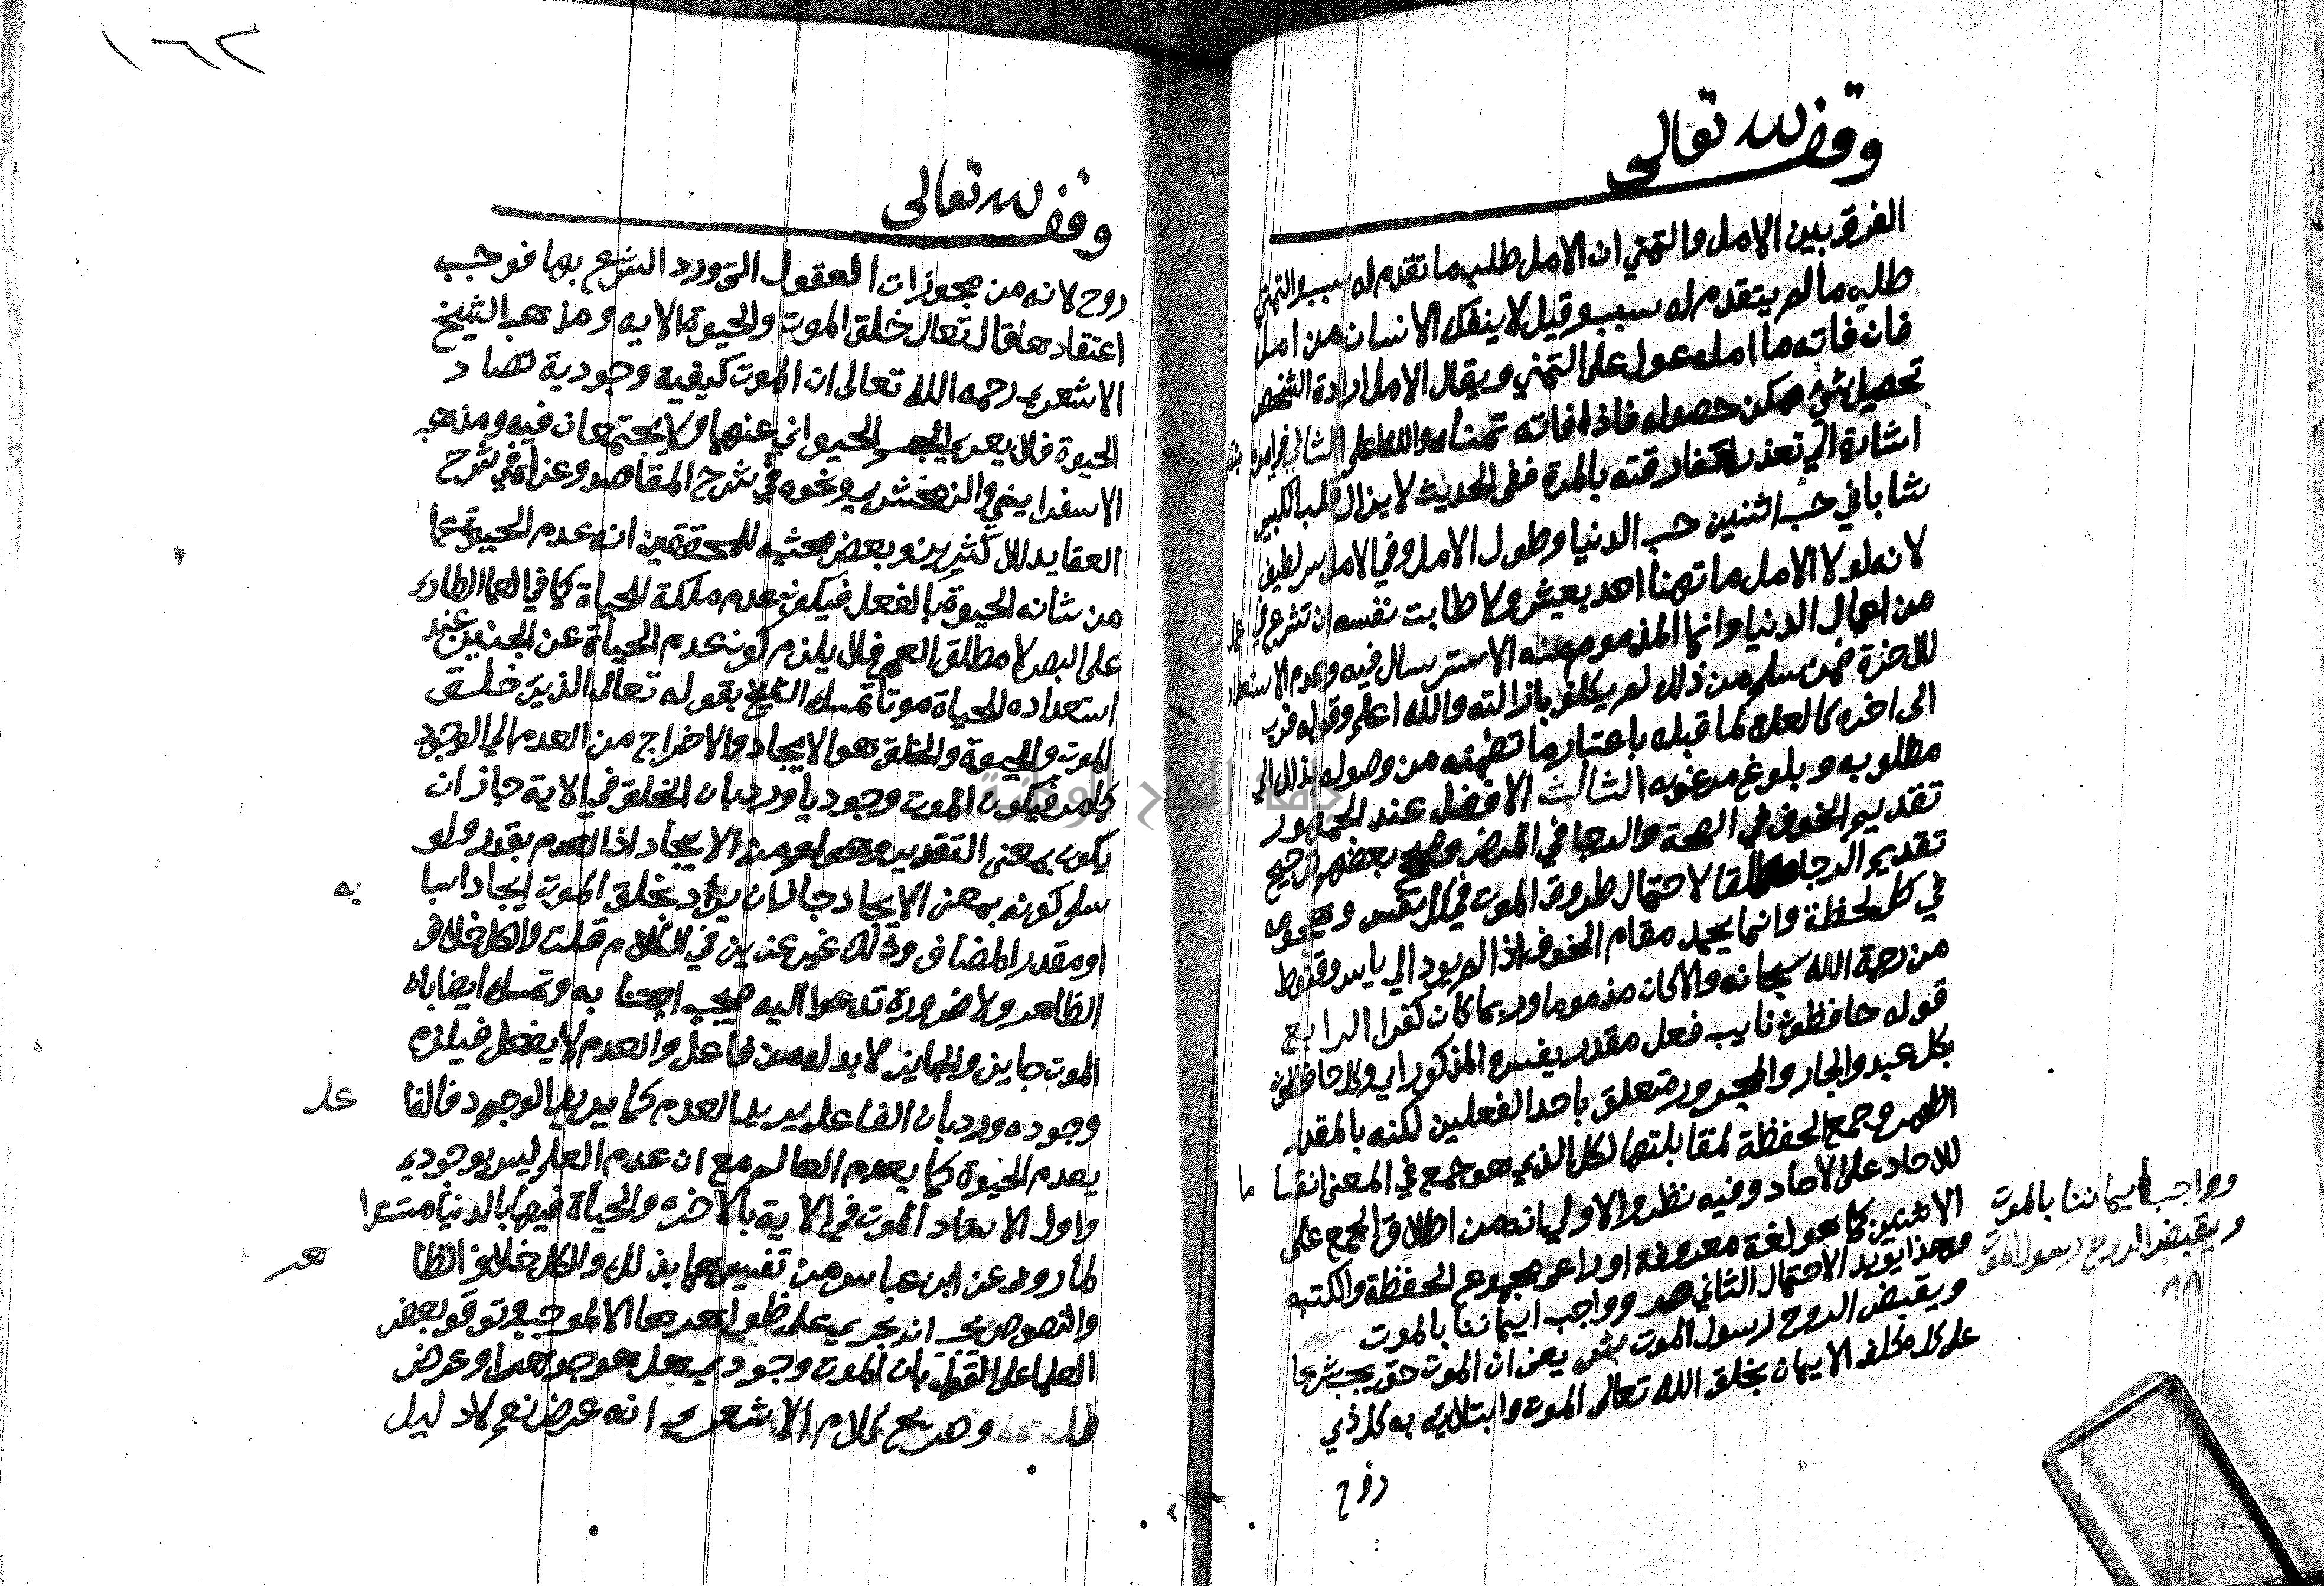 وقف لله تعالى
الفرق بين الامل والتمني ان الامل طلب ما تقدم له سبب والتمني
طلب ما لم يتقدم له سبب وقيل لا ينفك الانسان من امل
فان فاته ما امله عول على التمني ويقال الامل ارادة الشخص
تحصيل شئ يمكن حصوله فاذا فاته تمناه والله اعلم الثاني
اشارة الي تعذر مفارقته بالمرة ففي الحديث لا يزال قلب الكبير
شابا في حب اثنين حب الدنيا وطول الامل وفي الامل سر لطيف
لانه لولا الامل ما تهنا احد بعيش ولا طابت نفسه ان تشرع في عمل
من اعمال الدنيا وانما المذموم منه الاسترسال فيه وعدم الاستعداد
للاخرة فمن سلم من ذلك لم يكلف بازالته والله اعلم وقوله فرب
الى اخره كالعلة لما قبله باعتبار ما تضمنه من وصوله بذلك الي
مطلوبه وبلوغ مرغوبه الثالث الافضل عند الجمهور
تقديم الخوف في الصحة والرجا في المرض وصحح بعضهم ترجيح
تقديم الرجا مطلقا لاحتمال طروق الموت في كل نفس وهجومه
في كل لحظة وانما يحمد مقام الخوف اذا لم يود الي ياس وقنوط
من رحمة الله سبحانه والا كان مذموما وربما كان كفرا الرابع
قوله حافظون نايب فعل مقدر يفسره المذكور اي وكل حافظون
بكل عبد والجار والمجرور متعلق باحد الفعلين لكنه بالمقدر
اظهر وجمع الحفظة لمقابلتها لكل الذي هو جمع في المعنى انقسا ما
للاحاد على الاحاد وفيه نظر والاولي انه من اطلاق الجمع على
الاثنين كما هو لغة معروفة او راعى مجموع الحفظة والكتبه
وهذا يويد الاحتمال الثاني ص وواجب ايماننا بالموت
ويقبض الروح رسول الموت ش يعني ان الموت حق يجب شرعا
على كل مكلف الايمان بخلق الله تعالى الموت وابتلايه به كل ذي
روح
وواجب ايماننا بالموت
ويقبض الروح رسول الموت
١٦٢
وقف لله تعالى
روح لانه من مجوزات العقول التي ورد الشرع بها فوجب
اعتقادها قال تعالى خلق الموت والحيوة الايه ومذهب الشيخ
الاشعري رحمه الله تعالى ان الموت كيفية وجودية تضاد
الحيوة فلا يعرى الجسم الحيواني عنهما ولا يجتمعان فيه ومذهب
الاسفرايني والزمخشري ونحوه في شرح المقاصد وعزاه في شرح
العقايد للاكثرين وبعض محشيه للمحققين انه عدم الحيوة عما
من شانه الحيوة بالفعل فيكون عدم ملكة الحياة كما في العما الطاري
على البصر لا مطلق العمي فلا يلزم كون عدم الحياة عن الجنين عند
استعداده للحياة موتا تمسك الشيخ بقوله تعالى الذي خلق
الموت والحيوة والخلق هو الايجاد والاخراج من العدم الي الوجود
كامر فيكون الموت وجوديا ورد بان الخلق في الاية جاز ان
يكون بمعنى التقدير وهو اعم من الايجاد اذ العدم يقدر ولو
سلم كونه بمعنى الايجاد جاز ان يراد بخلق الموت ايجاد اسبا به
او مقدر المضاف وذلك غير عزيز في الكلام قلت والكل خلاف
الظاهر ولا ضرورة تدعوا اليه وتمسك ايضا بان
الموت جايز والجايز لا بد له من فاعل والعدم لا يفعل فيلزم
وجوده ورد بان الفاعل يريد العدم كما يريد الوجود فالفا عل
يعدم الحيوة كما يعدم العالم مع ان عدم العلم ليس بوجودي
واول الاستاد الموت في الاية بالاخره والحياة فيها بالدنيا
لما روي عن ابن عباس من تفسيرهما بذلك والكل خلاف الظا هر
والنصوص يجب ان تجري على ظواهرها الا لموجب وتوقف بعض
العلما على القول بان الموت وجودي هل هو جوهر او عرض
وصريح كلام الاشعري انه عرض نعم لا دليل